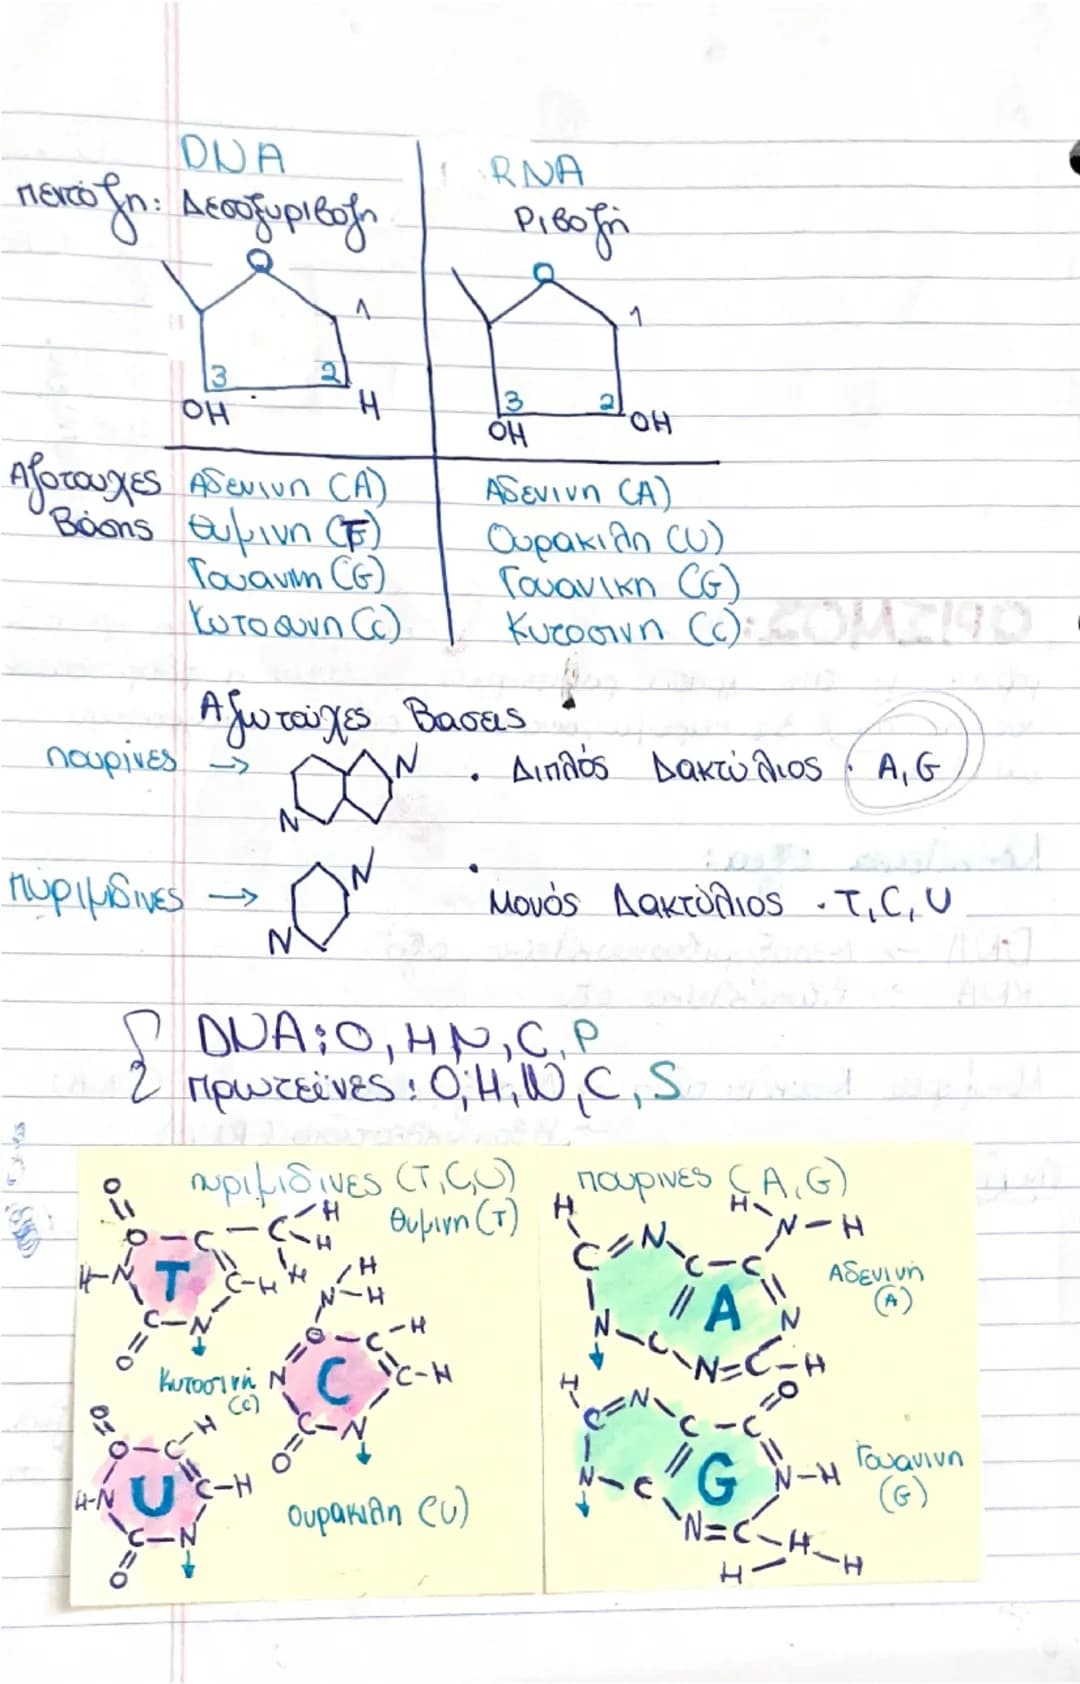 DNA
RNA
πεντόζη: Δεσοξυριβοζη
Ριβοζη
O
1
3
2
OH
H
O
1
3
2
OH
OH
Αζοτουχες Βάσης
Αδενινη (A)
Θυμινη (T)
Γουανινη (G)
Κυτοσινη (C)
Αδενινη (A)
Ουρακιλη (U)
Γουανικη (G)
Κυτοσινη (C)
Αζωτούχες Βασεις
πουρίνες → N N . Διπλός Δακτύλιος . A, G
πυριμιδινες → N N · Μονός Δακτύλιος . T, C, U
DNA: O, H N, C, P
2 πρωτεϊνες: O, H, N, C, S
πυριμιδινες (T, C, U)
Θυμινη (T)
T
Κυτοσινη (C)
C
U
Ουρακιλη (U)
πουρινες (A, G)
A
Αδενινη (A)
G
Γουανινη (G)